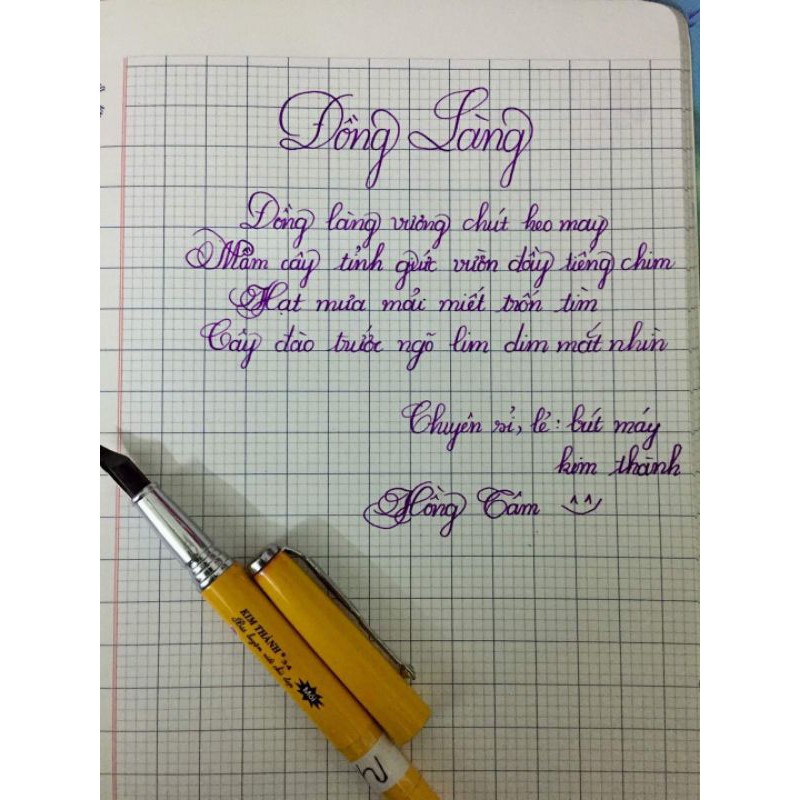 Đồng Làng
Đồng làng vương chút heo may
Mầm cây tỉnh giấc vườn đầy tiếng chim
Hạt mưa mải miết trốn tìm
Cây đào trước ngõ lim dim mắt nhìn
Chuyên sỉ, lẻ: bút máy
kim thành
Hồng Tâm
KIM THÀNH ® 2A
Bút luyện viết chữ đẹp
MỚI